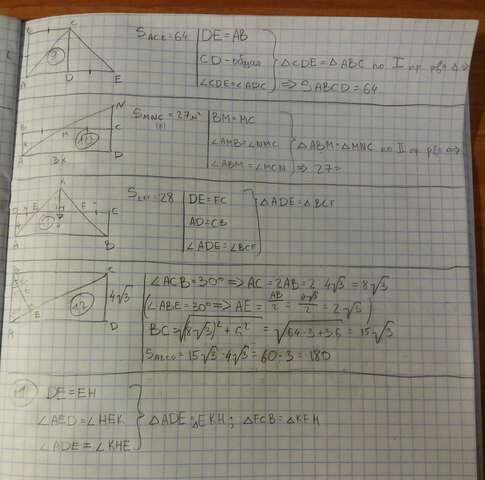 S ACE = 64
DE = AB
CD = общая
∠CDE = ∠ADC
△CDE = △ABC по I пр. рва △ ⇒
⇒ S ABCD = 64
B C
A D E
9
S MNC = 27
BM = MC
∠AMB = ∠NMC
∠ABM = ∠MCN
△ABM = △MNC по II пр. рва ⇒
⇒ 27
N
B M C
A 3x D
10
= 28
DE = FC
AD = CB
∠ADE = ∠BCF
△ADE = △BCF
K
D E F C
A B
11
∠ACB = 30° ⇒ AC = 2AB = 2 · 4√3 = 8√3
(∠ABE = 30° ⇒ AE = AB/2 = 4√3/2 = 2√3)
BC = √(8√3)² + 6² = √64·3+36 = 15√3
= 15√3 · 4√3 = 60 · 3 = 180
C
4√3
A E D
12
11
DE = EH
∠AED = ∠HEK
∠ADE = ∠KHE
△ADE = △EKH; △FCB = △KFH